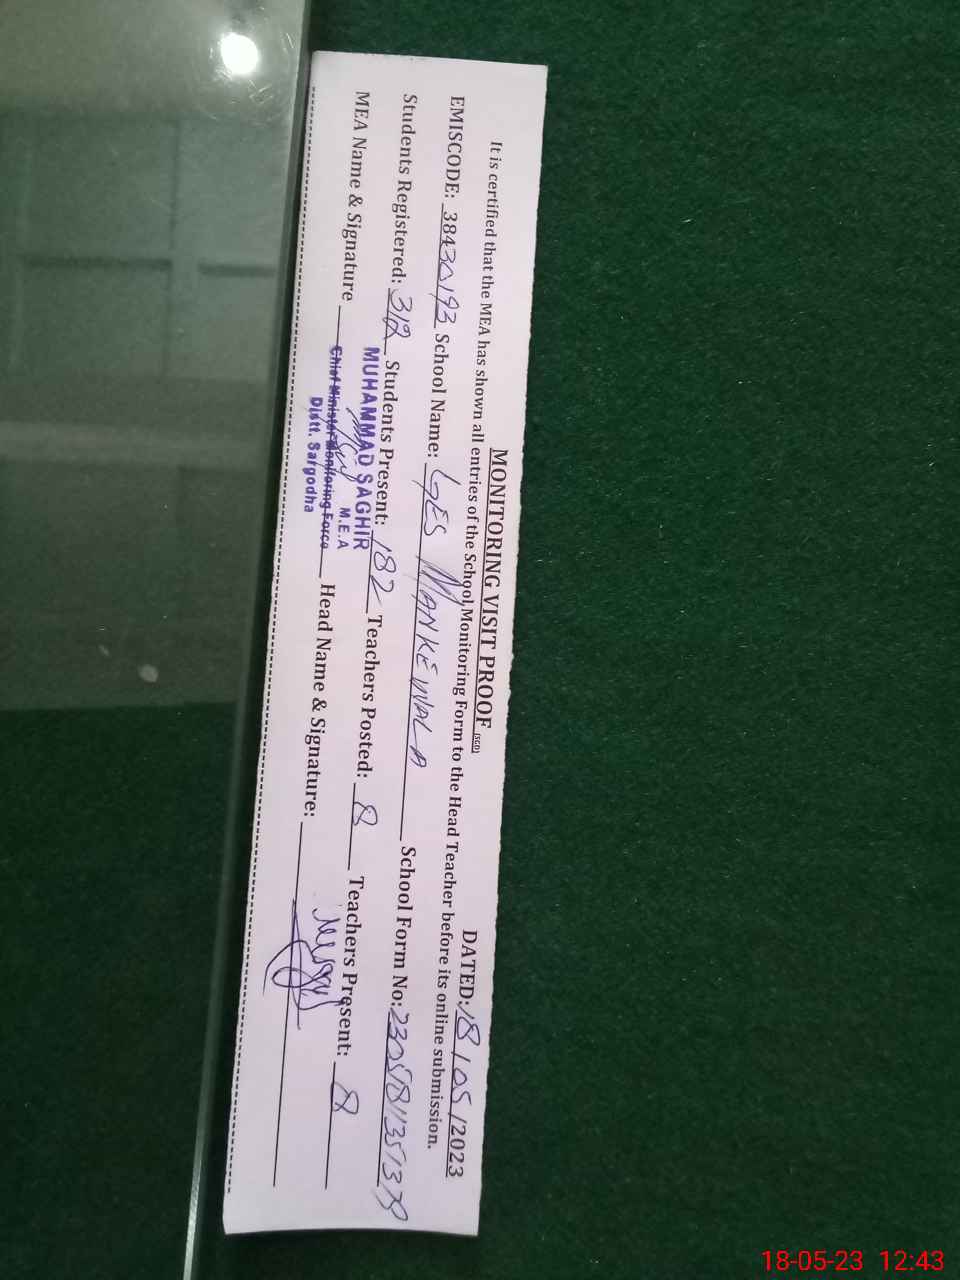 MONITORING VISIT PROOF (SGD)
DATED: 18 / 05 / 2023
It is certified that the MEA has shown all entries of the School Monitoring Form to the Head Teacher before its online submission.
EMISCODE: 38430193 School Name: GES MANKEWALA School Form No:
Students Registered: 312 Students Present: 182 Teachers Posted: 8 Teachers Present: 8
MEA Name & Signature Head Name & Signature:
MUHAMMAD SAGHIR
M.E.A
Chief Minister Monitoring Force
Distt. Sargodha
18-05-23 12:43